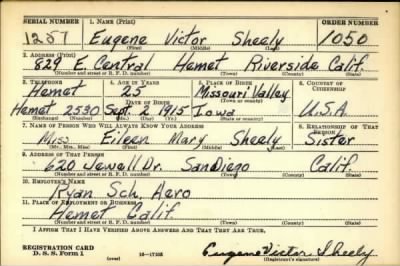 SERIAL NUMBER 1. NAME (Print) ORDER NUMBER
1257 Eugene Victor Sheely 1050
(First) (Middle) (Last)
2. ADDRESS (Print)
829 E. Central Hemet Riverside Calif.
(Number and street or R. F. D. number) (Town) (County) (State)
3. TELEPHONE 4. AGE IN YEARS 5. PLACE OF BIRTH 6. COUNTRY OF CITIZENSHIP
Hemet 25 Missouri Valley
DATE OF BIRTH (Town or county)
Hemet 2530 Sept. 2 1915 Iowa U.S.A.
(Exchange) (Number) (Mo.) (Day) (Yr.) (State or country)
7. NAME OF PERSON WHO WILL ALWAYS KNOW YOUR ADDRESS 8. RELATIONSHIP OF THAT PERSON
Miss Eileen Mary Sheely Sister
(Mr., Mrs., Miss) (First) (Middle) (Last)
9. ADDRESS OF THAT PERSON
620 Jewell Dr. San Diego Calif.
(Number and street or R. F. D. number) (Town) (County) (State)
10. EMPLOYER'S NAME
Ryan Sch. Aero
11. PLACE OF EMPLOYMENT OR BUSINESS
Hemet Calif.
(Number and street or R. F. D. number) (Town) (County) (State)
I AFFIRM THAT I HAVE VERIFIED ABOVE ANSWERS AND THAT THEY ARE TRUE.
REGISTRATION CARD
D. S. S. Form 1 (over) 16—17105 Eugene Victor Sheely
(Registrant's signature)